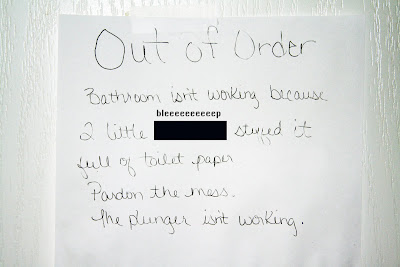 Out of Order
Bathroom isn't working because
bleeeeeeeeeep
2 little stuffed it
full of toilet paper
Pardon the mess.
The plunger isn't working.